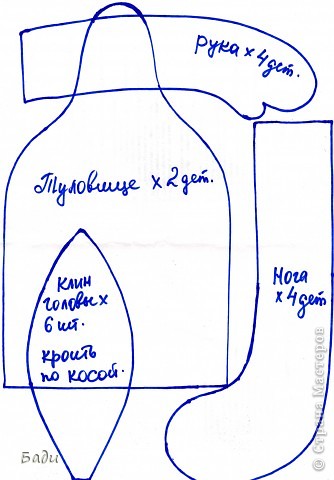 Рука х 4 дет.
Туловище х 2 дет.
Клин
головы х
6 шт.
кроить
по косой.
Нога
х 4 дет
Бади
© Страна Мастеров